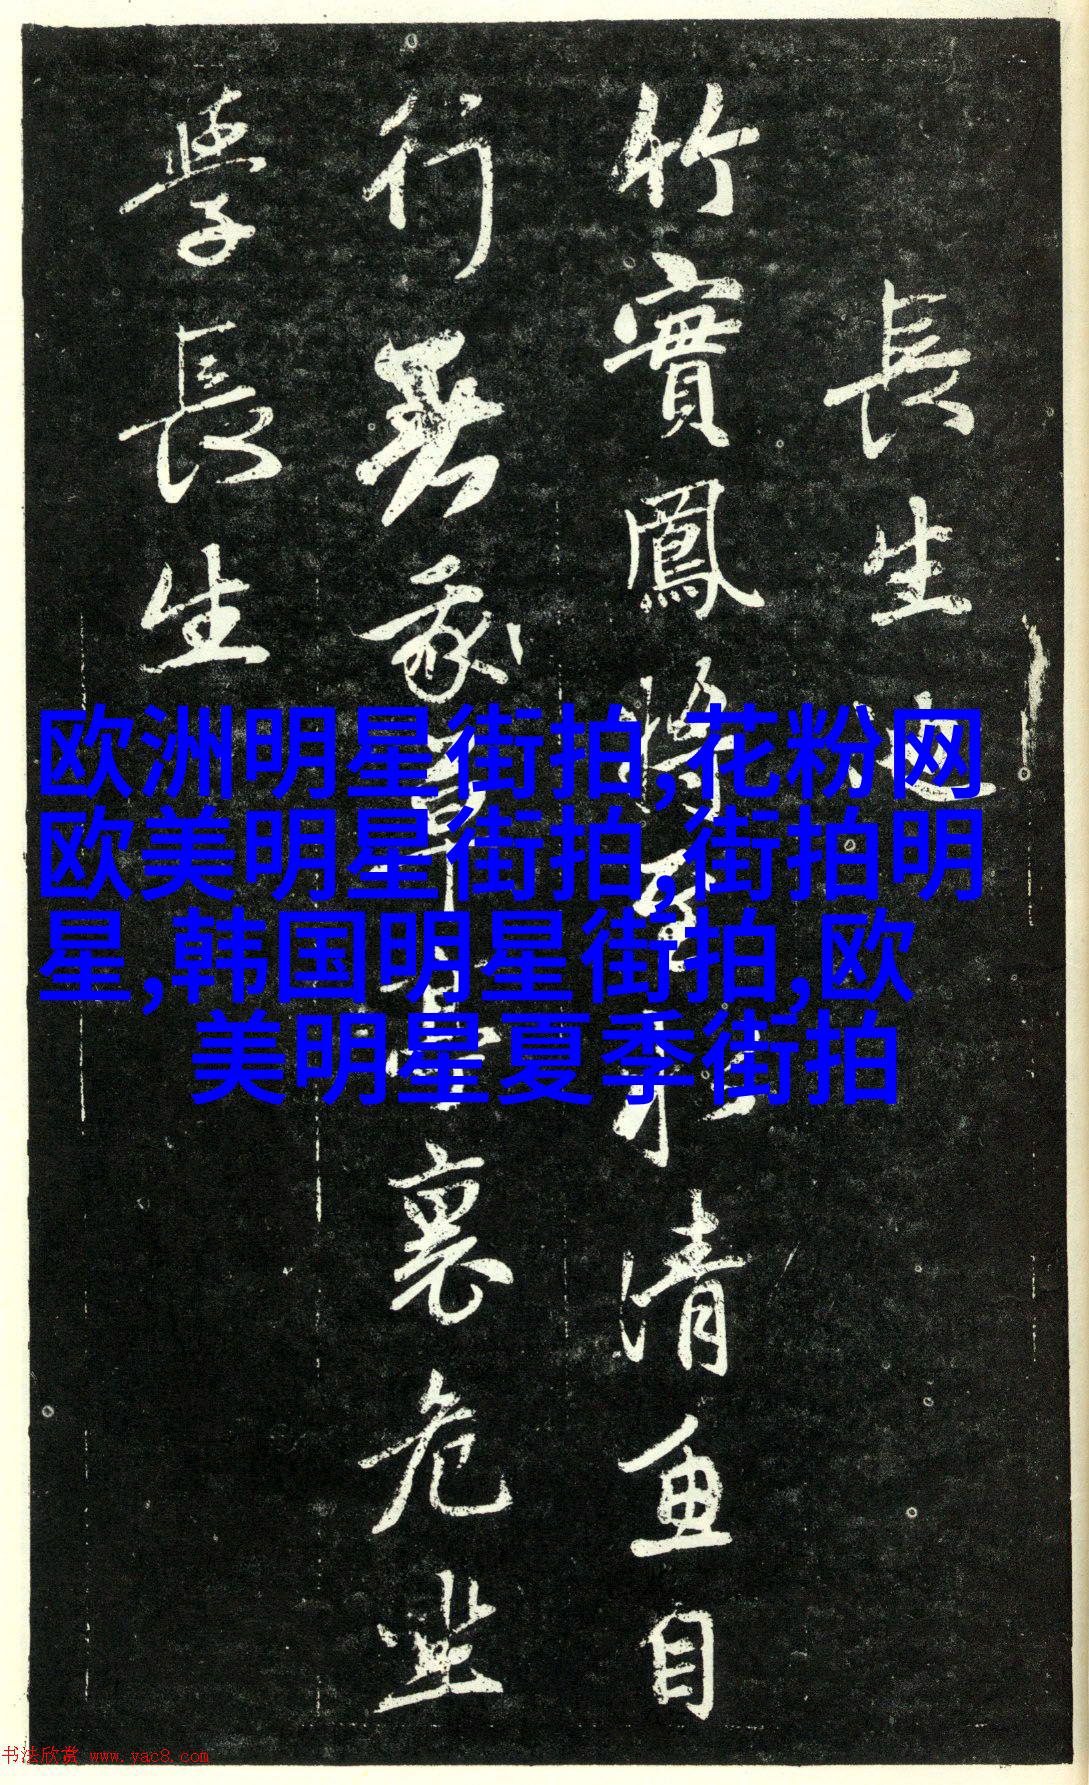 長生
竹實鳳將 清魚自
行無 裏危坐
學長生
欧洲明星街拍,花粉网
欧美明星街拍,街拍明
星,韩国明星街拍,欧
美明星夏季街拍
书法欣赏 www.yac8.com